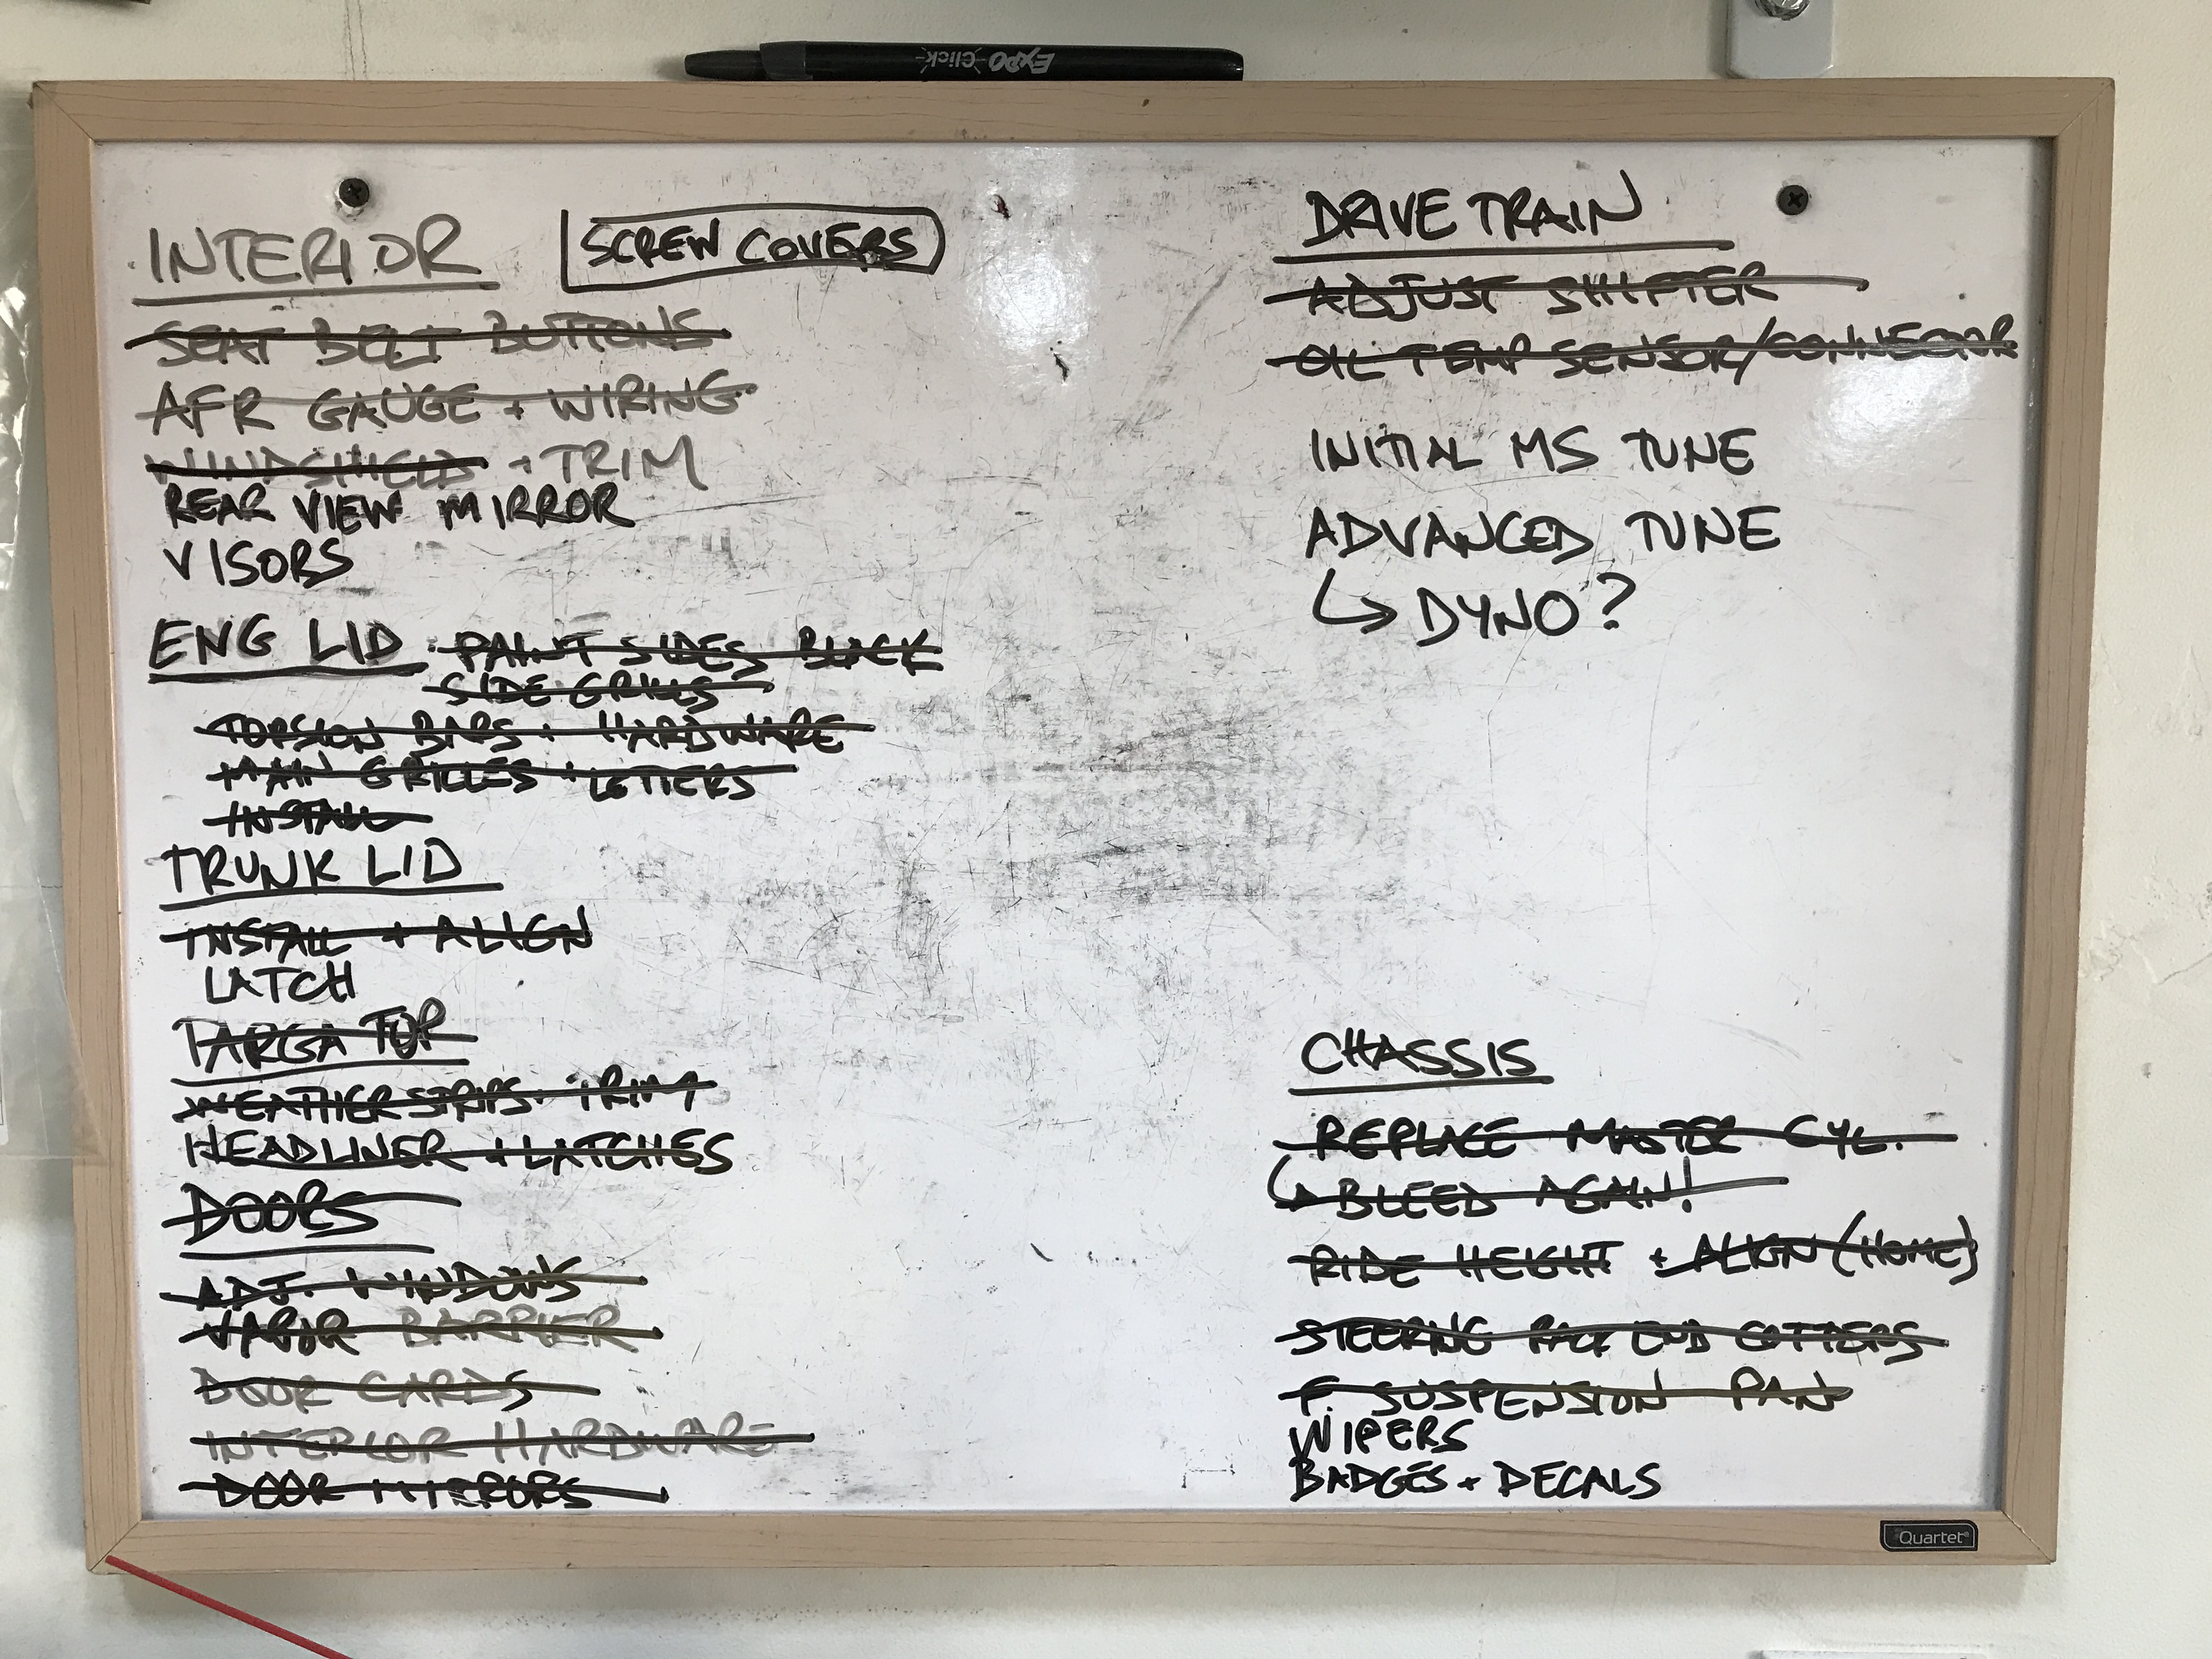 EXPO Click
INTERIOR
SCREW COVERS
SEAT BELT BUTTONS
AFR GAUGE + WIRING
WINDSHIELD + TRIM
REAR VIEW MIRROR
VISORS
ENG LID
PAINT SIDES BLACK
SIDE GRILLS
TORSION BARS + HARDWARE
MAIN GRILLES + LETTERS
INSTALL
TRUNK LID
INSTALL + ALIGN
LATCH
TARGA TOP
WEATHERSTRIPS + TRIM
HEADLINER + LATCHES
DOORS
ADJ. WINDOWS
VAPOR BARRIER
DOOR CARDS
INTERIOR HARDWARE
DOOR MIRRORS
DRIVE TRAIN
ADJUST SHIFTER
OIL TEMP SENSOR/CONNECTOR
INITIAL MS TUNE
ADVANCED TUNE
↳ DYNO?
CHASSIS
REPLACE MASTER CYL.
↳ BLEED AGAIN!
RIDE HEIGHT + ALIGN (HOME)
STEERING RACK END COTTERS
F. SUSPENSION PAN
WIPERS
BADGES + DECALS
Quartet